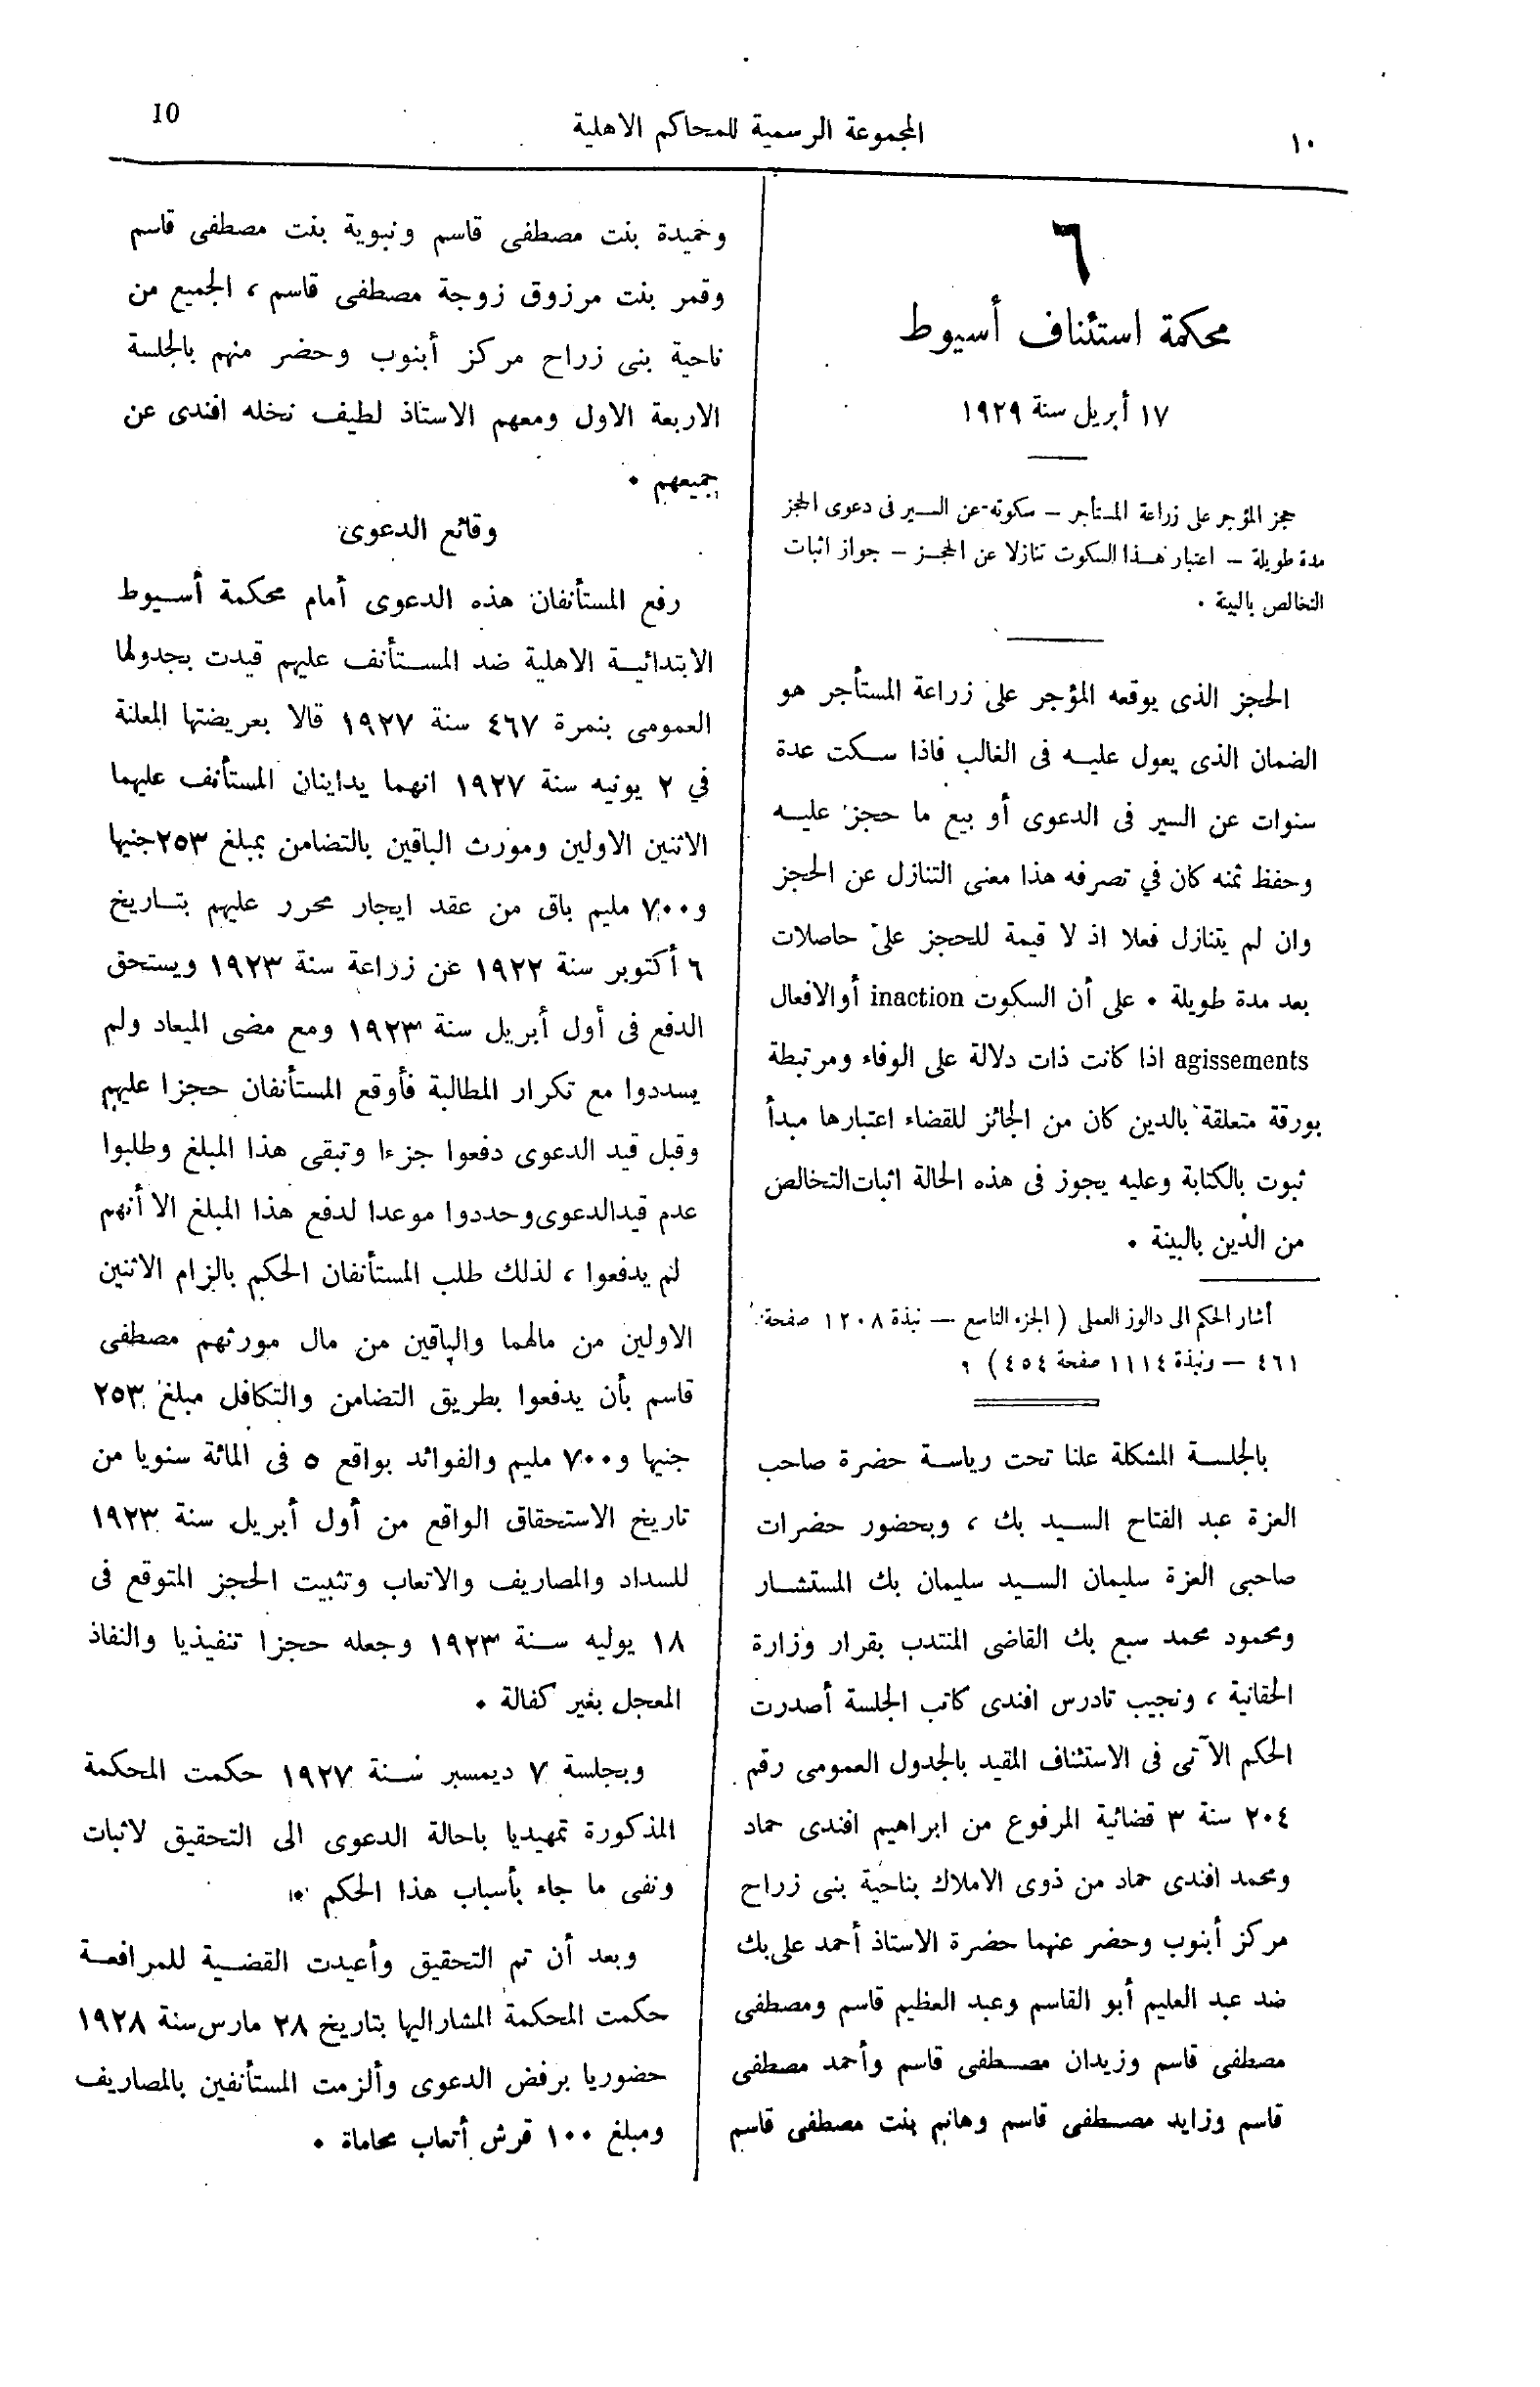 ١٠
المجموعة الرسمية للمحاكم الاهلية
10
٦
محكمة استئناف أسيوط
١٧ أبريل سنة ١٩٢٩
حجز المؤجر على زراعة المستأجر – سكوته عن السير فى دعوى الحجز
مدة طويلة – اعتبار هذا السكوت تنازلا عن الحجز – جواز اثبات
التخالص بالبينة .
الحجز الذى يوقعه المؤجر على زراعة المستأجر هو
الضمان الذى يعول عليه فى الغالب فاذا سكت عدة
سنوات عن السير فى الدعوى أو بيع ما حجز عليه
وحفظ ثمنه كان في تصرفه هذا معنى التنازل عن الحجز
وان لم يتنازل فعلا اذ لا قيمة للحجز على حاصلات
بعد مدة طويلة . على أن السكوت inaction أو الافعال
agissements اذا كانت ذات دلالة على الوفاء ومرتبطة
بورقة متعلقة بالدين كان من الجائز للقضاء اعتبارها مبدأ
ثبوت بالكتابة وعليه يجوز فى هذه الحالة اثبات التخالص
من الدين بالبينة .
أشار الحكم الى دالوز العملى ( الجزء التاسع — نبذة ١٢٠٨ صفحة
٤٦١ — ونبذة ١١١٤ صفحة ٤٥٤ ) .
بالجلسة المشكلة علنا تحت رياسة حضرة صاحب
العزة عبد الفتاح السيد بك ، وبحضور حضرات
صاحبى العزة سليمان السيد سليمان بك المستشار
ومحمود محمد سبع بك القاضى المنتدب بقرار وزارة
الحقانية ، ونجيب تادرس افندى كاتب الجلسة أصدرت
الحكم الآتى فى الاستئناف المقيد بالجدول العمومى رقم
٢٠٤ سنة ٣ قضائية المرفوع من ابراهيم افندى حماد
ومحمد افندى حماد من ذوى الاملاك بناحية بنى زراح
مركز أبنوب وحضر عنهما حضرة الاستاذ أحمد على بك
ضد عبد العليم أبو القاسم وعبد العظيم قاسم ومصطفى
مصطفى قاسم وزيدان مصطفى قاسم وأحمد مصطفى
قاسم وزايد مصطفى قاسم وهانم بنت مصطفى قاسم
وحميدة بنت مصطفى قاسم ونبوية بنت مصطفى قاسم
وقمر بنت مرزوق زوجة مصطفى قاسم ، الجميع من
ناحية بنى زراح مركز أبنوب وحضر منهم بالجلسة
الاربعة الاول ومعهم الاستاذ لطيف نخله افندى عن
جميعهم .
وقائع الدعوى
رفع المستأنفان هذه الدعوى أمام محكمة أسيوط
الابتدائية الاهلية ضد المستأنف عليهم قيدت بجدولها
العمومى بنمرة ٤٦٧ سنة ١٩٢٧ قالا بعريضتها المعلنة
في ٢ يونيه سنة ١٩٢٧ انهما يداينان المستأنف عليهما
الاثنين الاولين ومورث الباقين بالتضامن بمبلغ ٢٥٣ جنيها
و٧٠٠ مليم باق من عقد ايجار محرر عليهم بتاريخ
٦ أكتوبر سنة ١٩٢٢ عن زراعة سنة ١٩٢٣ ويستحق
الدفع فى أول أبريل سنة ١٩٢٣ ومع مضى الميعاد ولم
يسددوا مع تكرار المطالبة فأوقع المستأنفان حجزا عليهم
وقبل قيد الدعوى دفعوا جزءا وتبقى هذا المبلغ وطلبوا
عدم قيد الدعوى وحددوا موعدا لدفع هذا المبلغ الا أنهم
لم يدفعوا ، لذلك طلب المستأنفان الحكم بالزام الاثنين
الاولين من مالهما والباقين من مال مورثهم مصطفى
قاسم بأن يدفعوا بطريق التضامن والتكافل مبلغ ٢٥٣
جنيها و٧٠٠ مليم والفوائد بواقع ٥ فى المائة سنويا من
تاريخ الاستحقاق الواقع من أول أبريل سنة ١٩٢٣
للسداد والمصاريف والاتعاب وتثبيت الحجز المتوقع فى
١٨ يوليه سنة ١٩٢٣ وجعله حجزا تنفيذيا والنفاذ
المعجل بغير كفالة .
وبجلسة ٧ ديمسبر سنة ١٩٢٧ حكمت المحكمة
المذكورة تمهيديا باحالة الدعوى الى التحقيق لاثبات
ونفى ما جاء بأسباب هذا الحكم .
وبعد أن تم التحقيق وأعيدت القضية للمرافعة
حكمت المحكمة المشار اليها بتاريخ ٢٨ مارس سنة ١٩٢٨
حضوريا برفض الدعوى وألزمت المستأنفين بالمصاريف
ومبلغ ١٠٠ قرش أتعاب محاماة .